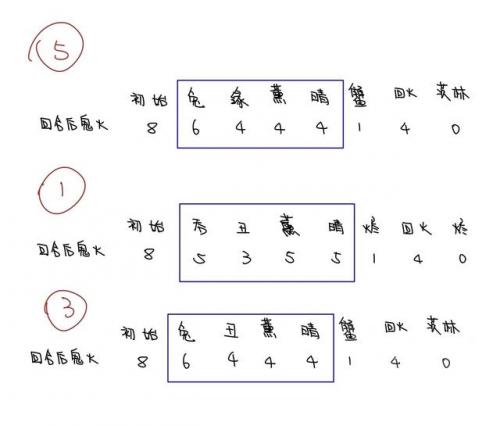 5
初始 兔 缘 薰 晴 蟹 回火 炎妹
回合后鬼火 8 6 4 4 4 1 4 0
1
初始 秀 丑 薰 晴 烬 回火 烬
回合后鬼火 8 5 3 5 5 1 4 0
3
初始 兔 丑 薰 晴 蟹 回火
回合后鬼火 8 6 4 4 4 1 4 0